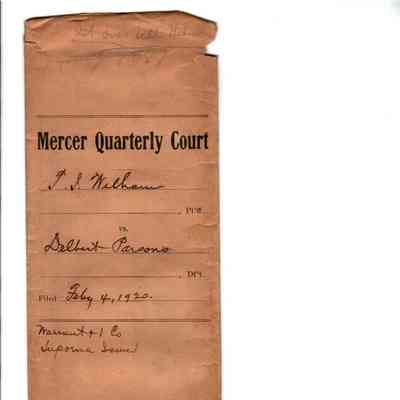 Mercer Quarterly Court
T. I. Welham
, Pltff
vs.
Delbert Parsons
, Dft
Filed Feby 4, 1920.
Warrant & 1 Co
Issued